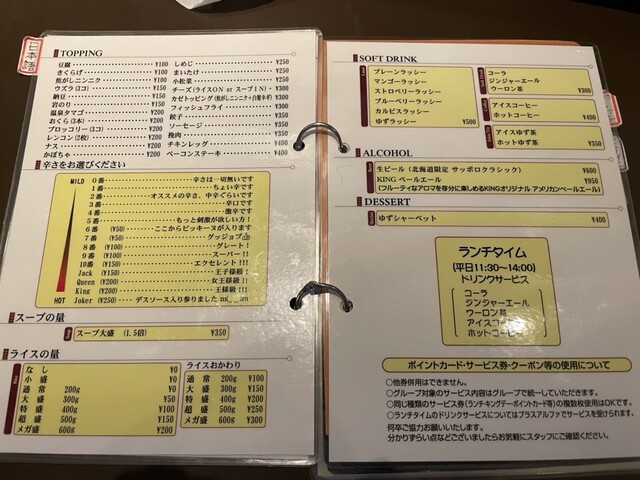 日本語
TOPPING
豆腐 ¥100
きくらげ ¥100
焦がしニンニク ¥100
ウズラ(3コ) ¥150
納豆 ¥150
岩のり ¥150
温泉タマゴ ¥200
おくら(3本) ¥200
ブロッコリー(3コ) ¥200
レンコン(2枚) ¥200
ナス ¥200
かぼちゃ ¥200
しめじ ¥250
まいたけ ¥250
小松菜 ¥250
チーズ(ライスON or スープIN) ¥300
カゼトッピング(焦がしニンニク+白髪ネギ) ¥300
フィッシュフライ ¥300
餃子 ¥300
ソーセージ ¥300
挽肉 ¥300
チキンレッグ ¥400
ベーコンステーキ ¥400
辛さをお選びください
MILD
HOT
0番 辛さは一切無いです
1番 ちょい辛です
2番 オススメの辛さ、中辛ぐらいです
3番 辛口です
4番 激辛です
5番 もっと刺激が欲しい方!
6番 (¥50) ここからピッキーヌが入ります
7番 (¥50) グッジョブ
8番 (¥100) グレート!
9番 (¥100) スーパー!!
10番 (¥150) エクセレント!!!
Jack (¥150) 王子様級!
Queen (¥200) 女王様級!!
King (¥200) 王様級!!!
Joker (¥250) デスソース入り参りました m(__)m
スープの量
スープ大盛 (1.5倍) ¥350
ライスの量
なし ¥0
小盛 ¥0
通常 200g ¥0
大盛 300g ¥50
特盛 400g ¥100
超盛 500g ¥150
メガ盛 600g ¥200
ライスおかわり
通常 200g ¥100
大盛 300g ¥150
特盛 400g ¥200
超盛 500g ¥250
メガ盛 600g ¥300
SOFT DRINK
プレーンラッシー
マンゴーラッシー
ストロベリーラッシー
ブルーベリーラッシー
カルピスラッシー
ゆずラッシー ¥500
コーラ
ジンジャーエール
ウーロン茶 ¥300
アイスコーヒー
ホットコーヒー ¥400
アイスゆず茶
ホットゆず茶 ¥350
ALCOHOL
生ビール (北海道限定 サッポロクラシック) ¥600
KING ペールエール ¥950
(フルーティなアロマを存分に楽しめるKINGオリジナル アメリカンペールエール)
DESSERT
ゆずシャーベット ¥400
ランチタイム
(平日11:30~14:00)
ドリンクサービス
コーラ
ジンジャーエール
ウーロン茶
アイスコーヒー
ホットコーヒー
ポイントカード・サービス券・クーポン等の使用について
○他券併用はできません。
○グループ対象のサービス内容はグループで統一していただきます。
○同じ種類のサービス券(ランチキングデーポイントカード等)の複数枚使用はOKです。
○ランチタイムのドリンクサービスについてはプラスアルファでサービスを受けられます。
何卒ご協力お願いいたします。
分かりずらい点などございましたらお気軽にスタッフにご確認ください。